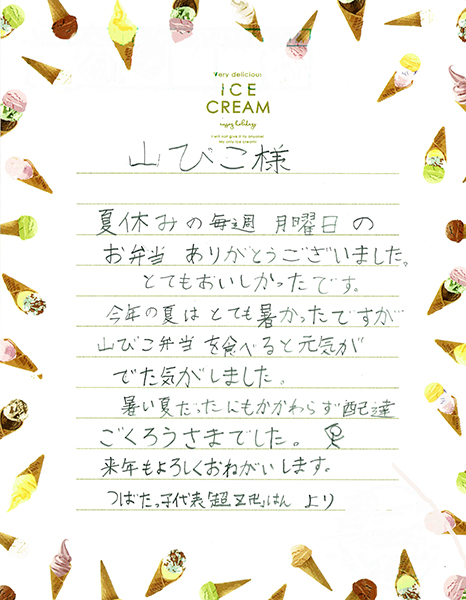 Very delicious
ICE
CREAM
enjoy holidays
I will not give it to anyone!
My only ice cream!
山びこ様
夏休みの毎週 月曜日の
お弁当 ありがとうございました。
とてもおいしかったです。
今年の夏は とても暑かったですが
山びこ弁当 を食べると元気が
でた気がしました。
暑い夏だったにもかかわらず配達
ごくろうさまでした。
来年もよろしくおねがいします。
つばたっ子代表 より